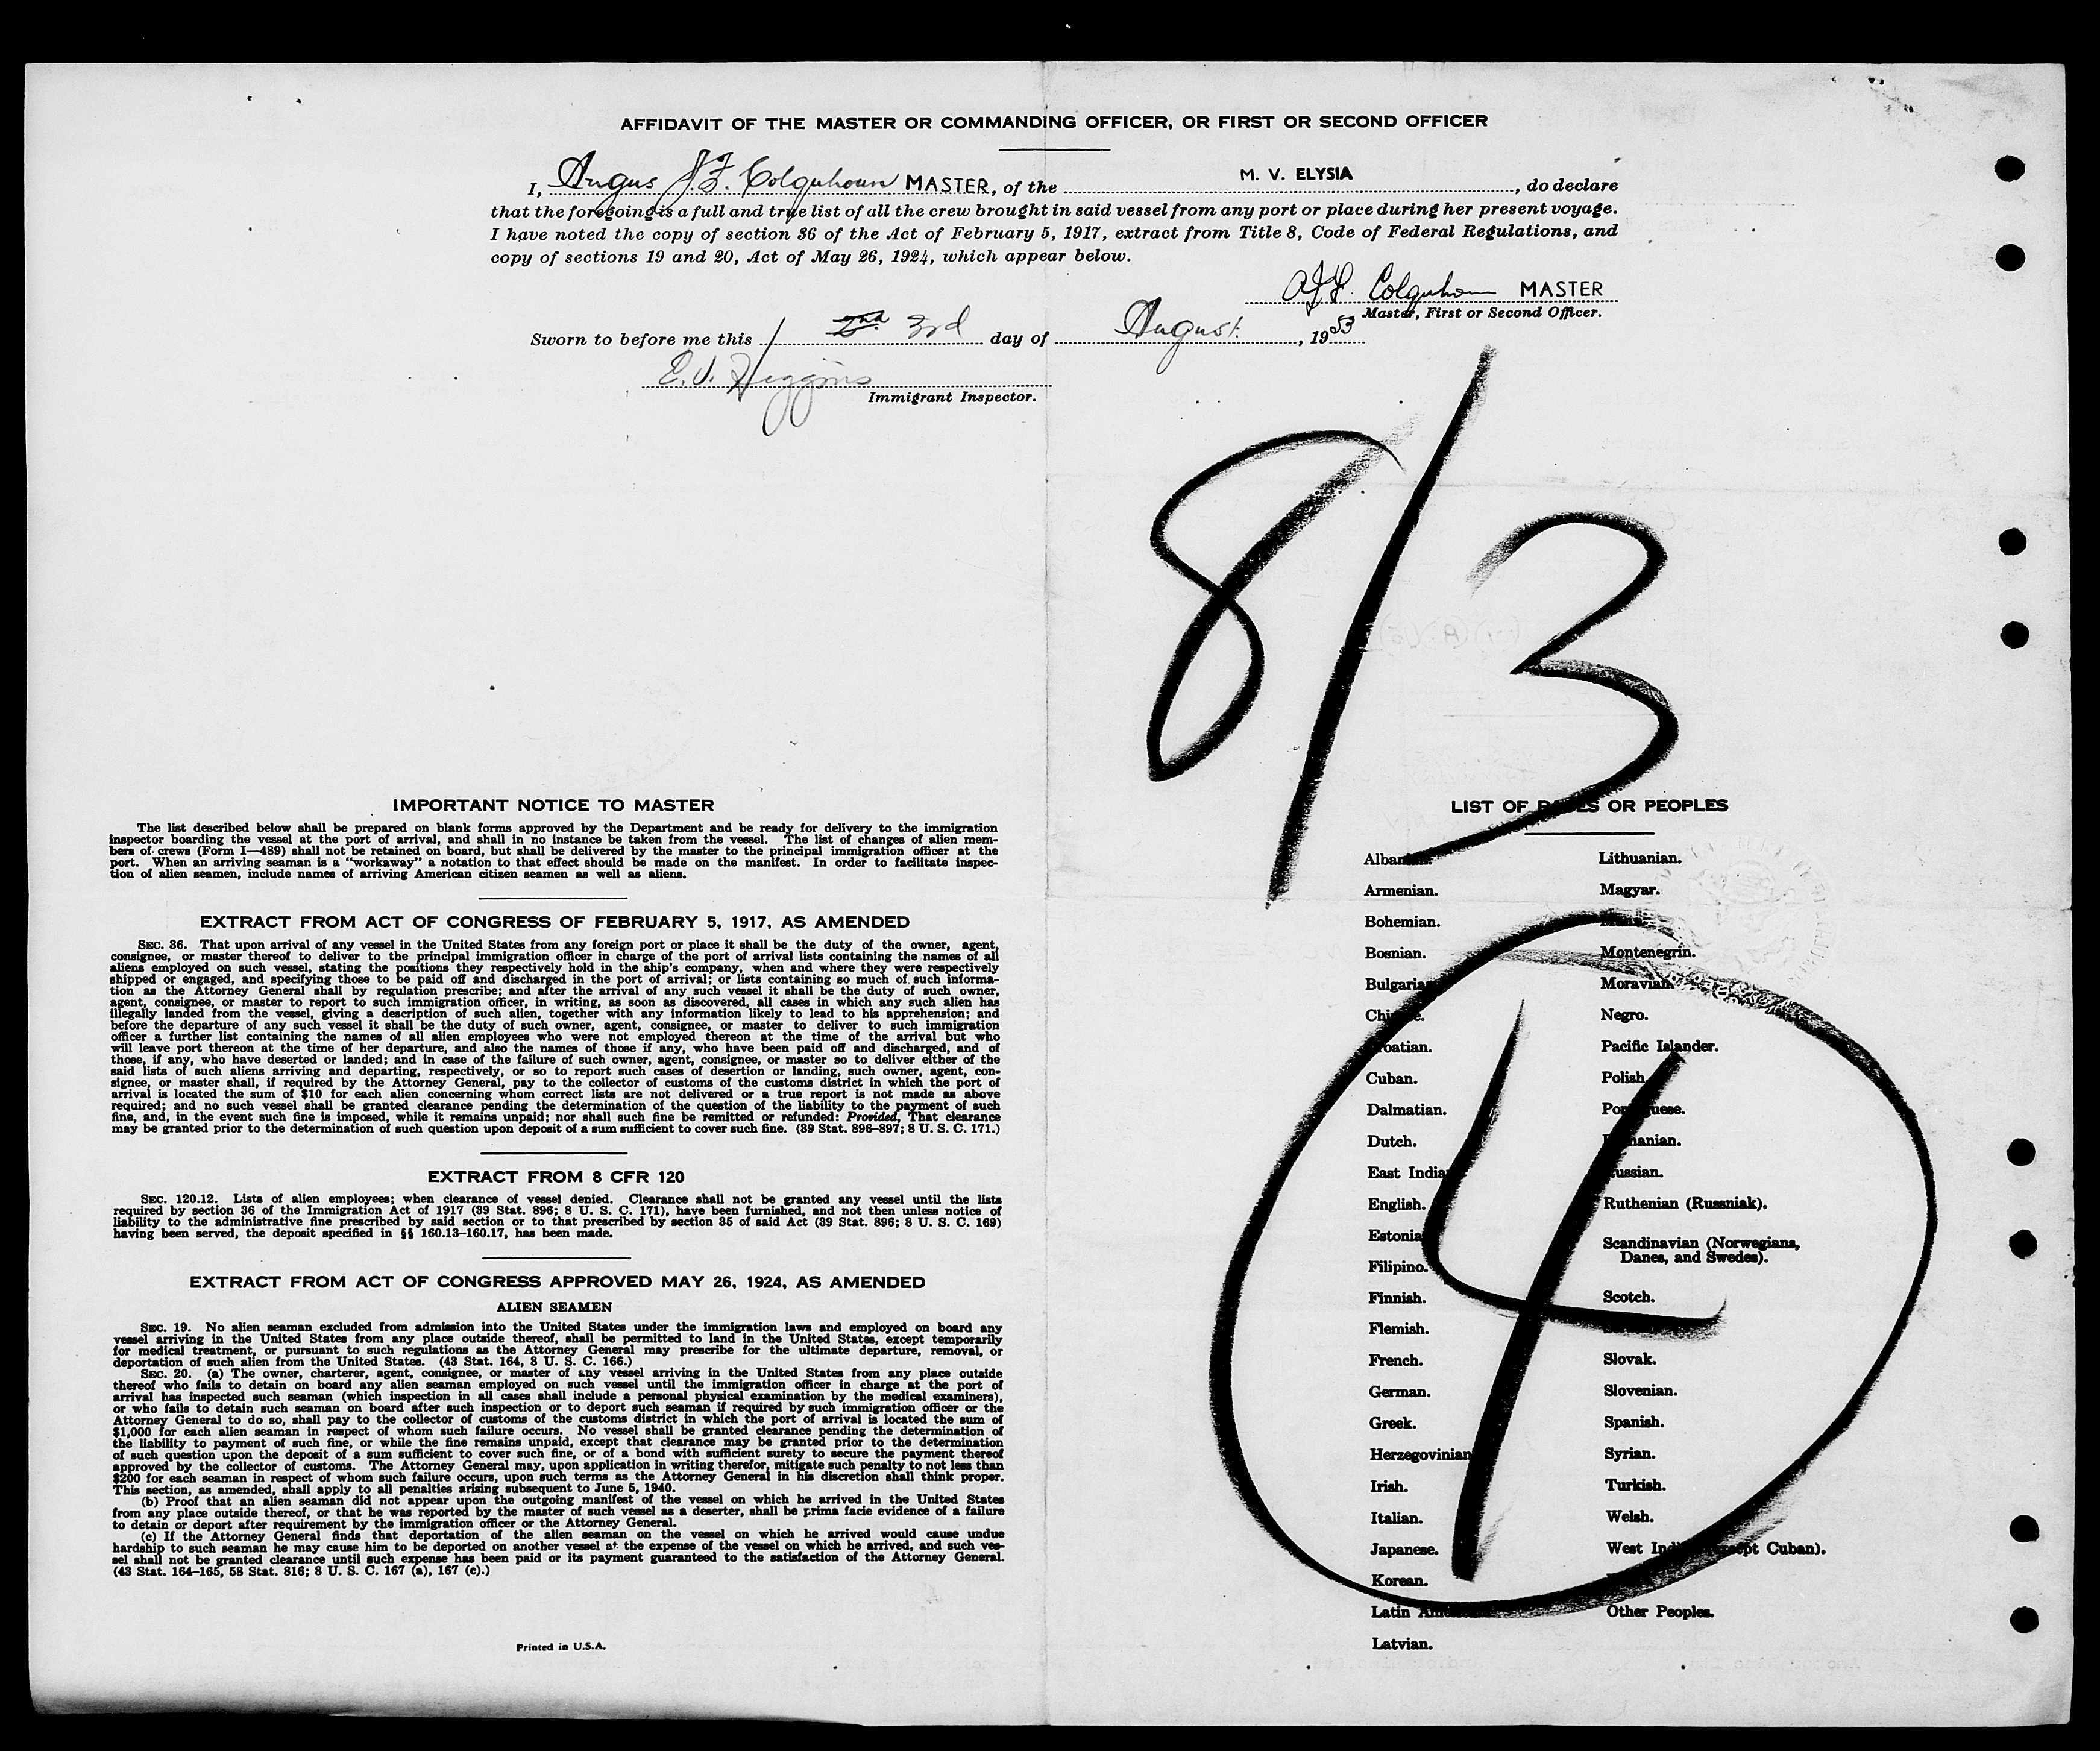 AFFIDAVIT OF THE MASTER OR COMMANDING OFFICER, OR FIRST OR SECOND OFFICER
I, Angus J.F. Colquhoun MASTER, of the M. V. ELYSIA, do declare
that the foregoing is a full and true list of all the crew brought in said vessel from any port or place during her present voyage.
I have noted the copy of section 36 of the Act of February 5, 1917, extract from Title 8, Code of Federal Regulations, and
copy of sections 19 and 20, Act of May 26, 1924, which appear below.
AJF. Colquhoun MASTER
Master, First or Second Officer.
Sworn to before me this 2nd 3rd day of August, 1953
E. J. Higgins
Immigrant Inspector.
8/3
IMPORTANT NOTICE TO MASTER
The list described below shall be prepared on blank forms approved by the Department and be ready for delivery to the immigration
inspector boarding the vessel at the port of arrival, and shall in no instance be taken from the vessel. The list of changes of alien mem-
bers of crews (Form I—489) shall not be retained on board, but shall be delivered by the master to the principal immigration officer at the
port. When an arriving seaman is a "workaway" a notation to that effect should be made on the manifest. In order to facilitate inspec-
tion of alien seamen, include names of arriving American citizen seamen as well as aliens.
EXTRACT FROM ACT OF CONGRESS OF FEBRUARY 5, 1917, AS AMENDED
SEC. 36. That upon arrival of any vessel in the United States from any foreign port or place it shall be the duty of the owner, agent,
consignee, or master thereof to deliver to the principal immigration officer in charge of the port of arrival lists containing the names of all
aliens employed on such vessel, stating the positions they respectively hold in the ship's company, when and where they were respectively
shipped or engaged, and specifying those to be paid off and discharged in the port of arrival; or lists containing so much of such informa-
tion as the Attorney General shall by regulation prescribe; and after the arrival of any such vessel it shall be the duty of such owner,
agent, consignee, or master to report to such immigration officer, in writing, as soon as discovered, all cases in which any such alien has
illegally landed from the vessel, giving a description of such alien, together with any information likely to lead to his apprehension; and
before the departure of any such vessel it shall be the duty of such owner, agent, consignee, or master to deliver to such immigration
officer a further list containing the names of all alien employees who were not employed thereon at the time of the arrival but who
will leave port thereon at the time of her departure, and also the names of those if any, who have been paid off and discharged, and of
those, if any, who have deserted or landed; and in case of the failure of such owner, agent, consignee, or master so to deliver either of the
said lists of such aliens arriving and departing, respectively, or so to report such cases of desertion or landing, such owner, agent, con-
signee, or master shall, if required by the Attorney General, pay to the collector of customs of the customs district in which the port of
arrival is located the sum of $10 for each alien concerning whom correct lists are not delivered or a true report is not made as above
required; and no such vessel shall be granted clearance pending the determination of the question of the liability to the payment of such
fine, and, in the event such fine is imposed, while it remains unpaid; nor shall such fine be remitted or refunded: Provided, That clearance
may be granted prior to the determination of such question upon deposit of a sum sufficient to cover such fine. (39 Stat. 896–897; 8 U. S. C. 171.)
EXTRACT FROM 8 CFR 120
SEC. 120.12. Lists of alien employees; when clearance of vessel denied. Clearance shall not be granted any vessel until the lists
required by section 36 of the Immigration Act of 1917 (39 Stat. 896; 8 U. S. C. 171), have been furnished, and not then unless notice of
liability to the administrative fine prescribed by said section or to that prescribed by section 35 of said Act (39 Stat. 896; 8 U. S. C. 169)
having been served, the deposit specified in §§ 160.13–160.17, has been made.
EXTRACT FROM ACT OF CONGRESS APPROVED MAY 26, 1924, AS AMENDED
ALIEN SEAMEN
SEC. 19. No alien seaman excluded from admission into the United States under the immigration laws and employed on board any
vessel arriving in the United States from any place outside thereof, shall be permitted to land in the United States, except temporarily
for medical treatment, or pursuant to such regulations as the Attorney General may prescribe for the ultimate departure, removal, or
deportation of such alien from the United States. (43 Stat. 164, 8 U. S. C. 166.)
SEC. 20. (a) The owner, charterer, agent, consignee, or master of any vessel arriving in the United States from any place outside
thereof who fails to detain on board any alien seaman employed on such vessel until the immigration officer in charge at the port of
arrival has inspected such seaman (which inspection in all cases shall include a personal physical examination by the medical examiners),
or who fails to detain such seaman on board after such inspection or to deport such seaman if required by such immigration officer or the
Attorney General to do so, shall pay to the collector of customs of the customs district in which the port of arrival is located the sum of
$1,000 for each alien seaman in respect of whom such failure occurs. No vessel shall be granted clearance pending the determination of
the liability to payment of such fine, or while the fine remains unpaid, except that clearance may be granted prior to the determination
of such question upon the deposit of a sum sufficient to cover such fine, or of a bond with sufficient surety to secure the payment thereof
approved by the collector of customs. The Attorney General may, upon application in writing therefor, mitigate such penalty to not less than
$200 for each seaman in respect of whom such failure occurs, upon such terms as the Attorney General in his discretion shall think proper.
This section, as amended, shall apply to all penalties arising subsequent to June 5, 1940.
(b) Proof that an alien seaman did not appear upon the outgoing manifest of the vessel on which he arrived in the United States
from any place outside thereof, or that he was reported by the master of such vessel as a deserter, shall be prima facie evidence of a failure
to detain or deport after requirement by the immigration officer or the Attorney General.
(c) If the Attorney General finds that deportation of the alien seaman on the vessel on which he arrived would cause undue
hardship to such seaman he may cause him to be deported on another vessel at the expense of the vessel on which he arrived, and such ves-
sel shall not be granted clearance until such expense has been paid or its payment guaranteed to the satisfaction of the Attorney General.
(43 Stat. 164–165, 58 Stat. 816; 8 U. S. C. 167 (a), 167 (c).)
Printed in U.S.A.
LIST OF RACES OR PEOPLES
Albanian.
Armenian.
Bohemian.
Bosnian.
Bulgarian.
Chinese.
Croatian.
Cuban.
Dalmatian.
Dutch.
East Indian.
English.
Estonian.
Filipino.
Finnish.
Flemish.
French.
German.
Greek.
Herzegovinian.
Irish.
Italian.
Japanese.
Korean.
Latin American.
Latvian.
Lithuanian.
Magyar.
Montenegrin.
Moravian.
Negro.
Pacific Islander.
Polish.
Portuguese.
Rumanian.
Russian.
Ruthenian (Russniak).
Scandinavian (Norwegians,
Danes, and Swedes).
Scotch.
Slovak.
Slovenian.
Spanish.
Syrian.
Turkish.
Welsh.
West Indian (except Cuban).
Other Peoples.
4